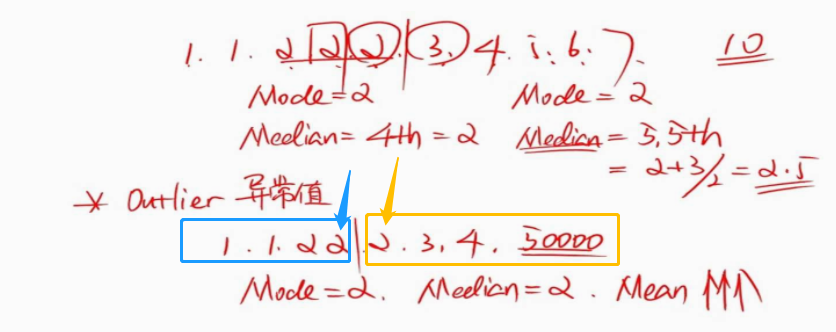 1. 1. 2 2 2. 3. 4. 5. 6. 7. 10
Mode=2 Mode=2
Median=4th=2 Median=5.5th
=2+3/2=2.5
* Outlier 异常值
1. 1. 2 2 2. 3. 4. 50000
Mode=2. Median=2. Mean ↑↑↑